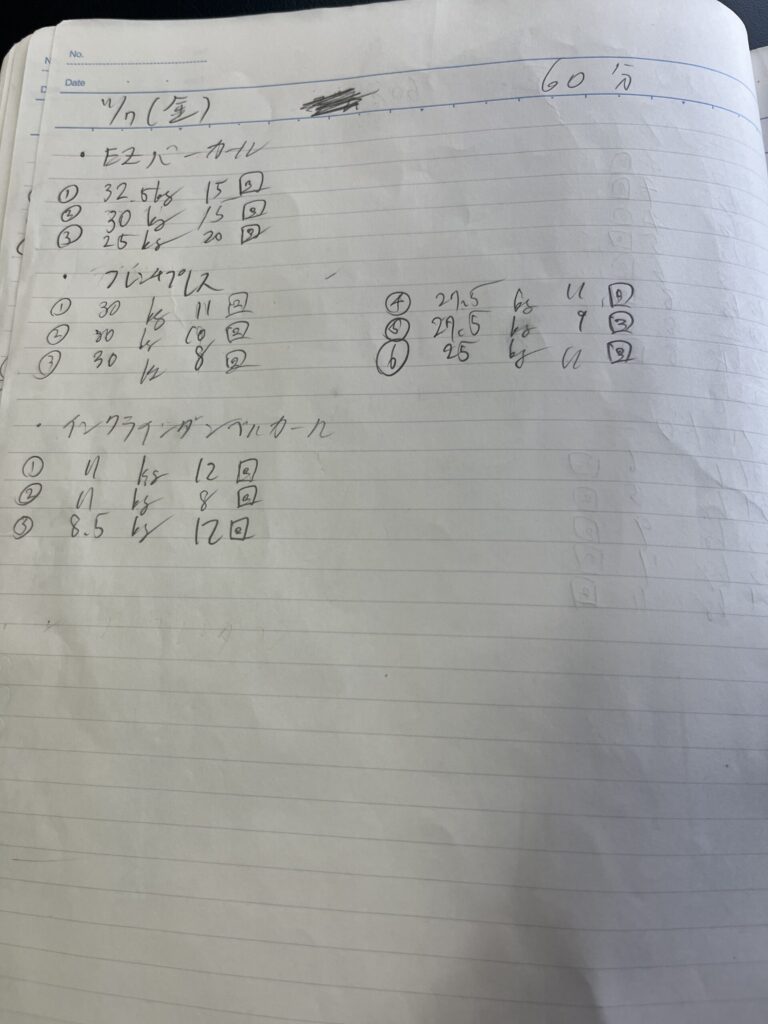 No.
Date
11/7(金)
60分
・EZバーカール
① 32.5kg 15回
② 30kg 15回
③ 25kg 20回
・フレンチプレス
① 30kg 11回
② 30kg 10回
③ 30kg 8回
④ 27.5kg 11回
⑤ 27.5kg 9回
⑥ 25kg 11回
・インクラインダンベルカール
① 11kg 12回
② 11kg 8回
③ 8.5kg 12回